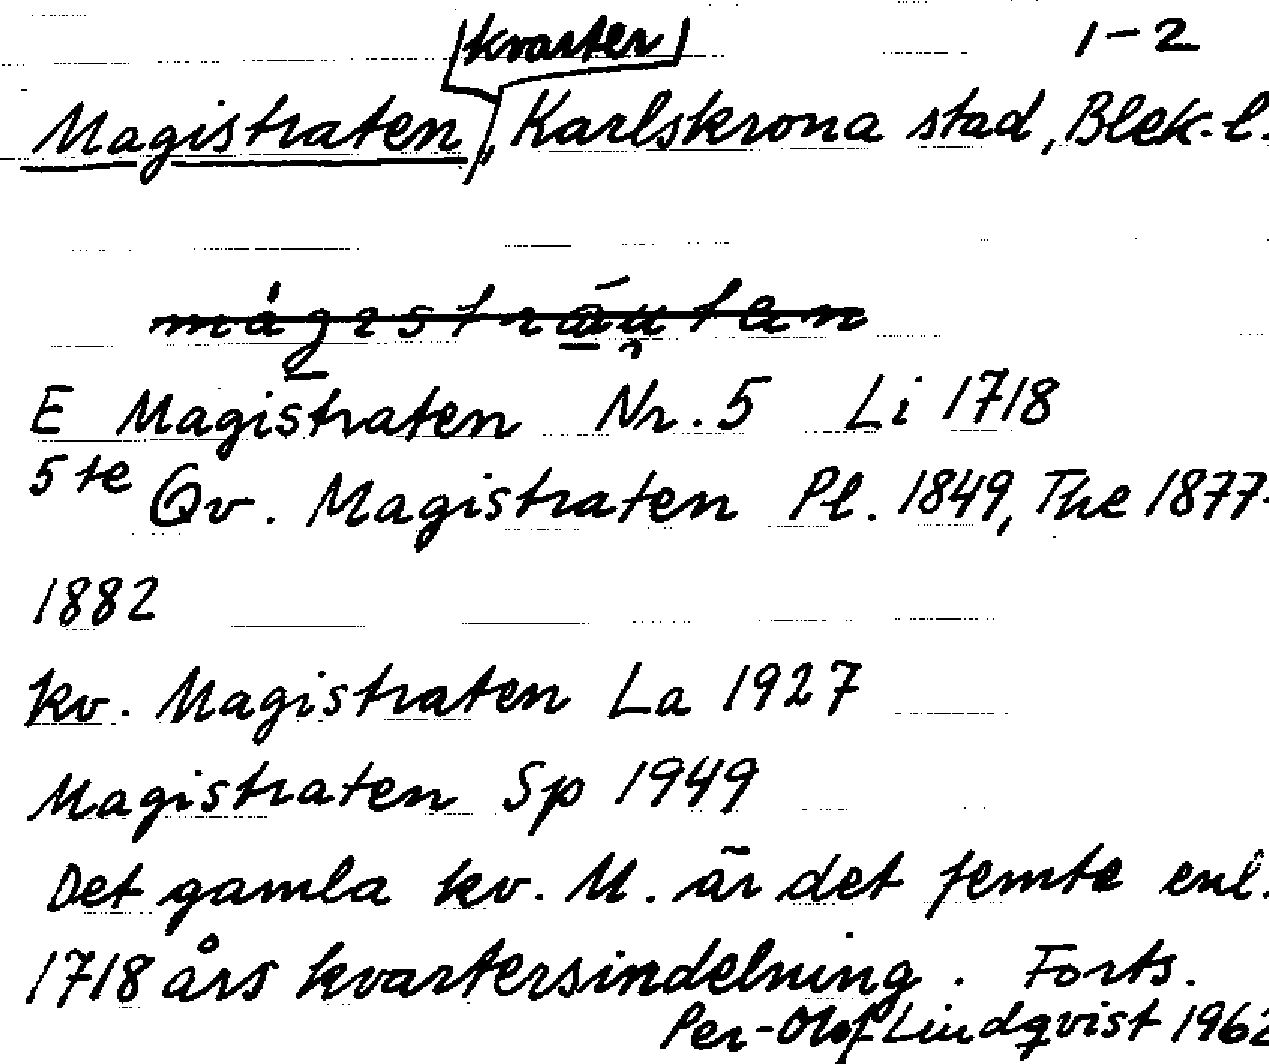 kvarter 1-2
Magistraten, Karlskrona stad, Blek. l.
E Magistraten Nr. 5 Li 1718
5te Qv. Magistraten Pl. 1849, The 1877-
1882
kv. Magistraten La 1927
Magistraten Sp 1949
Det gamla kv. M. är det femte enl.
1718 års kvartersindelning. Forts.
Per-Olof Lindqvist 1962